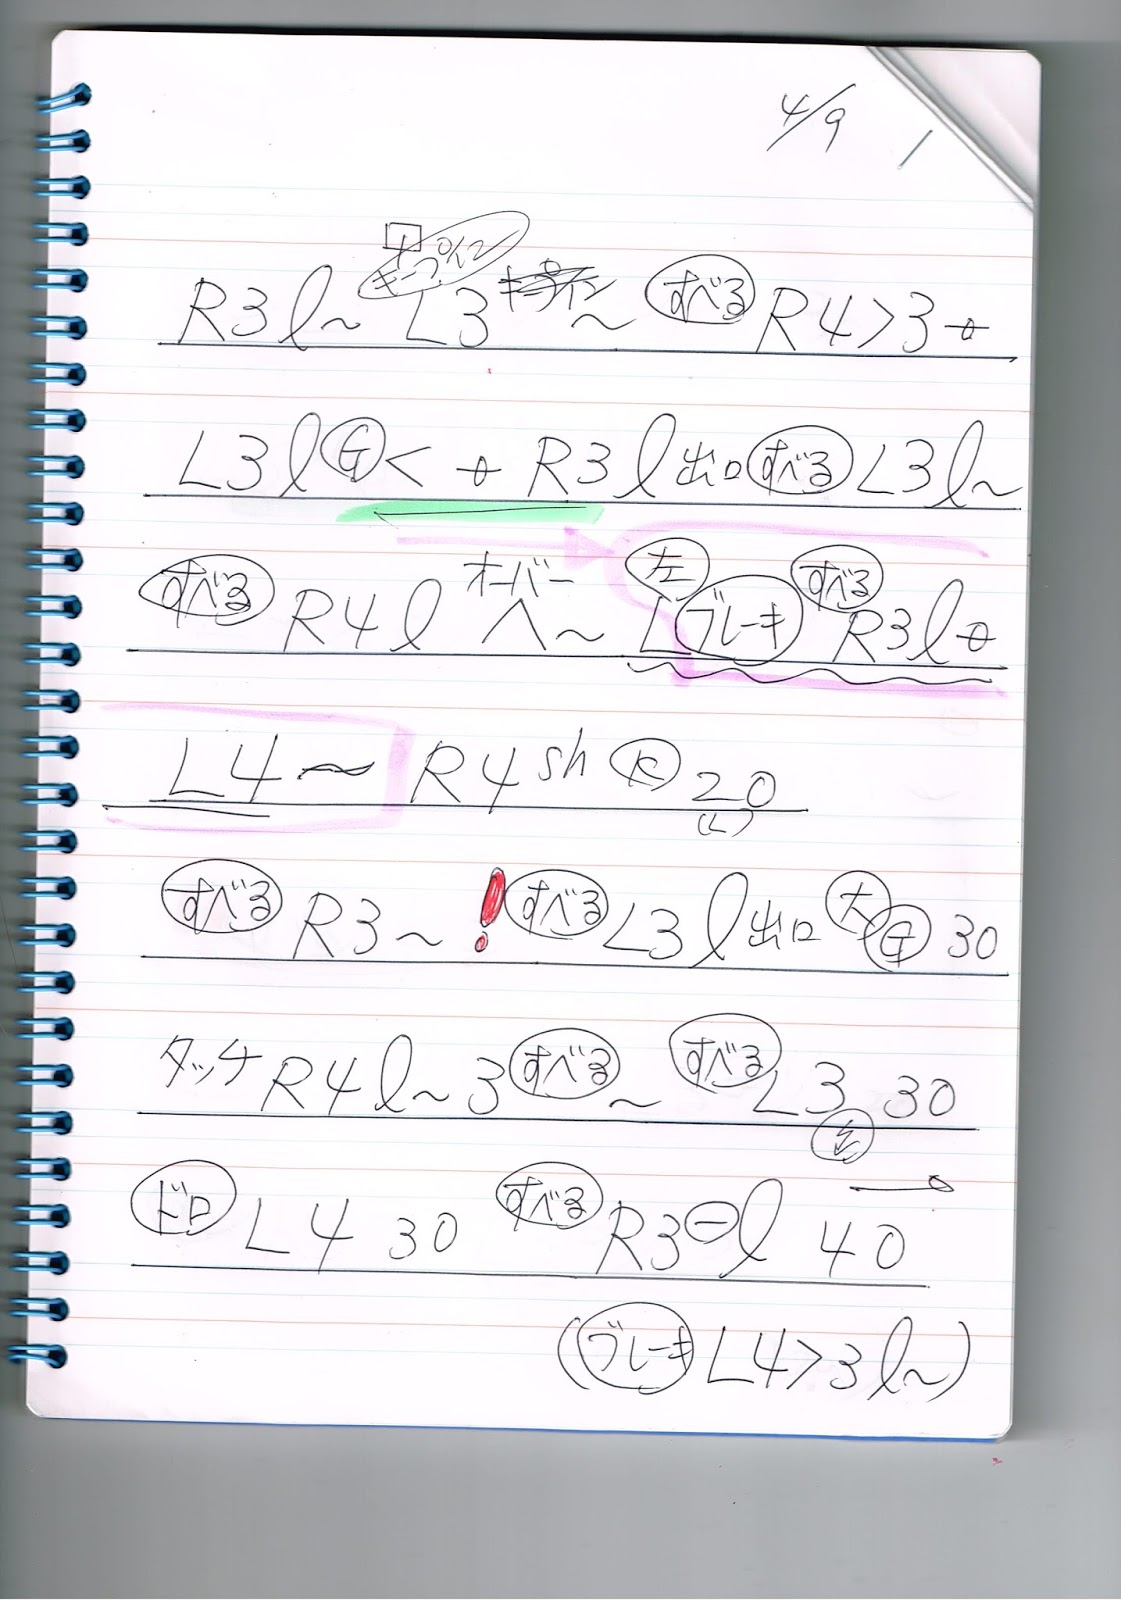 4/9 1
キープイン
R3l〜 L3 〜 すべる R4>3→
L3l G < → R3l 出口 すべる L3l〜
すべる R4l オーバー へ〜 左 L ブレーキ すべる R3l→
L4〜 R4sh K 20
(L)
すべる R3〜 ! すべる L3l 出口 大 G 30
タッチ R4l〜3 すべる 〜 すべる L3 30
ドロ L4 30 すべる R3⊖l 40
(ブレーキ L4>3l〜)